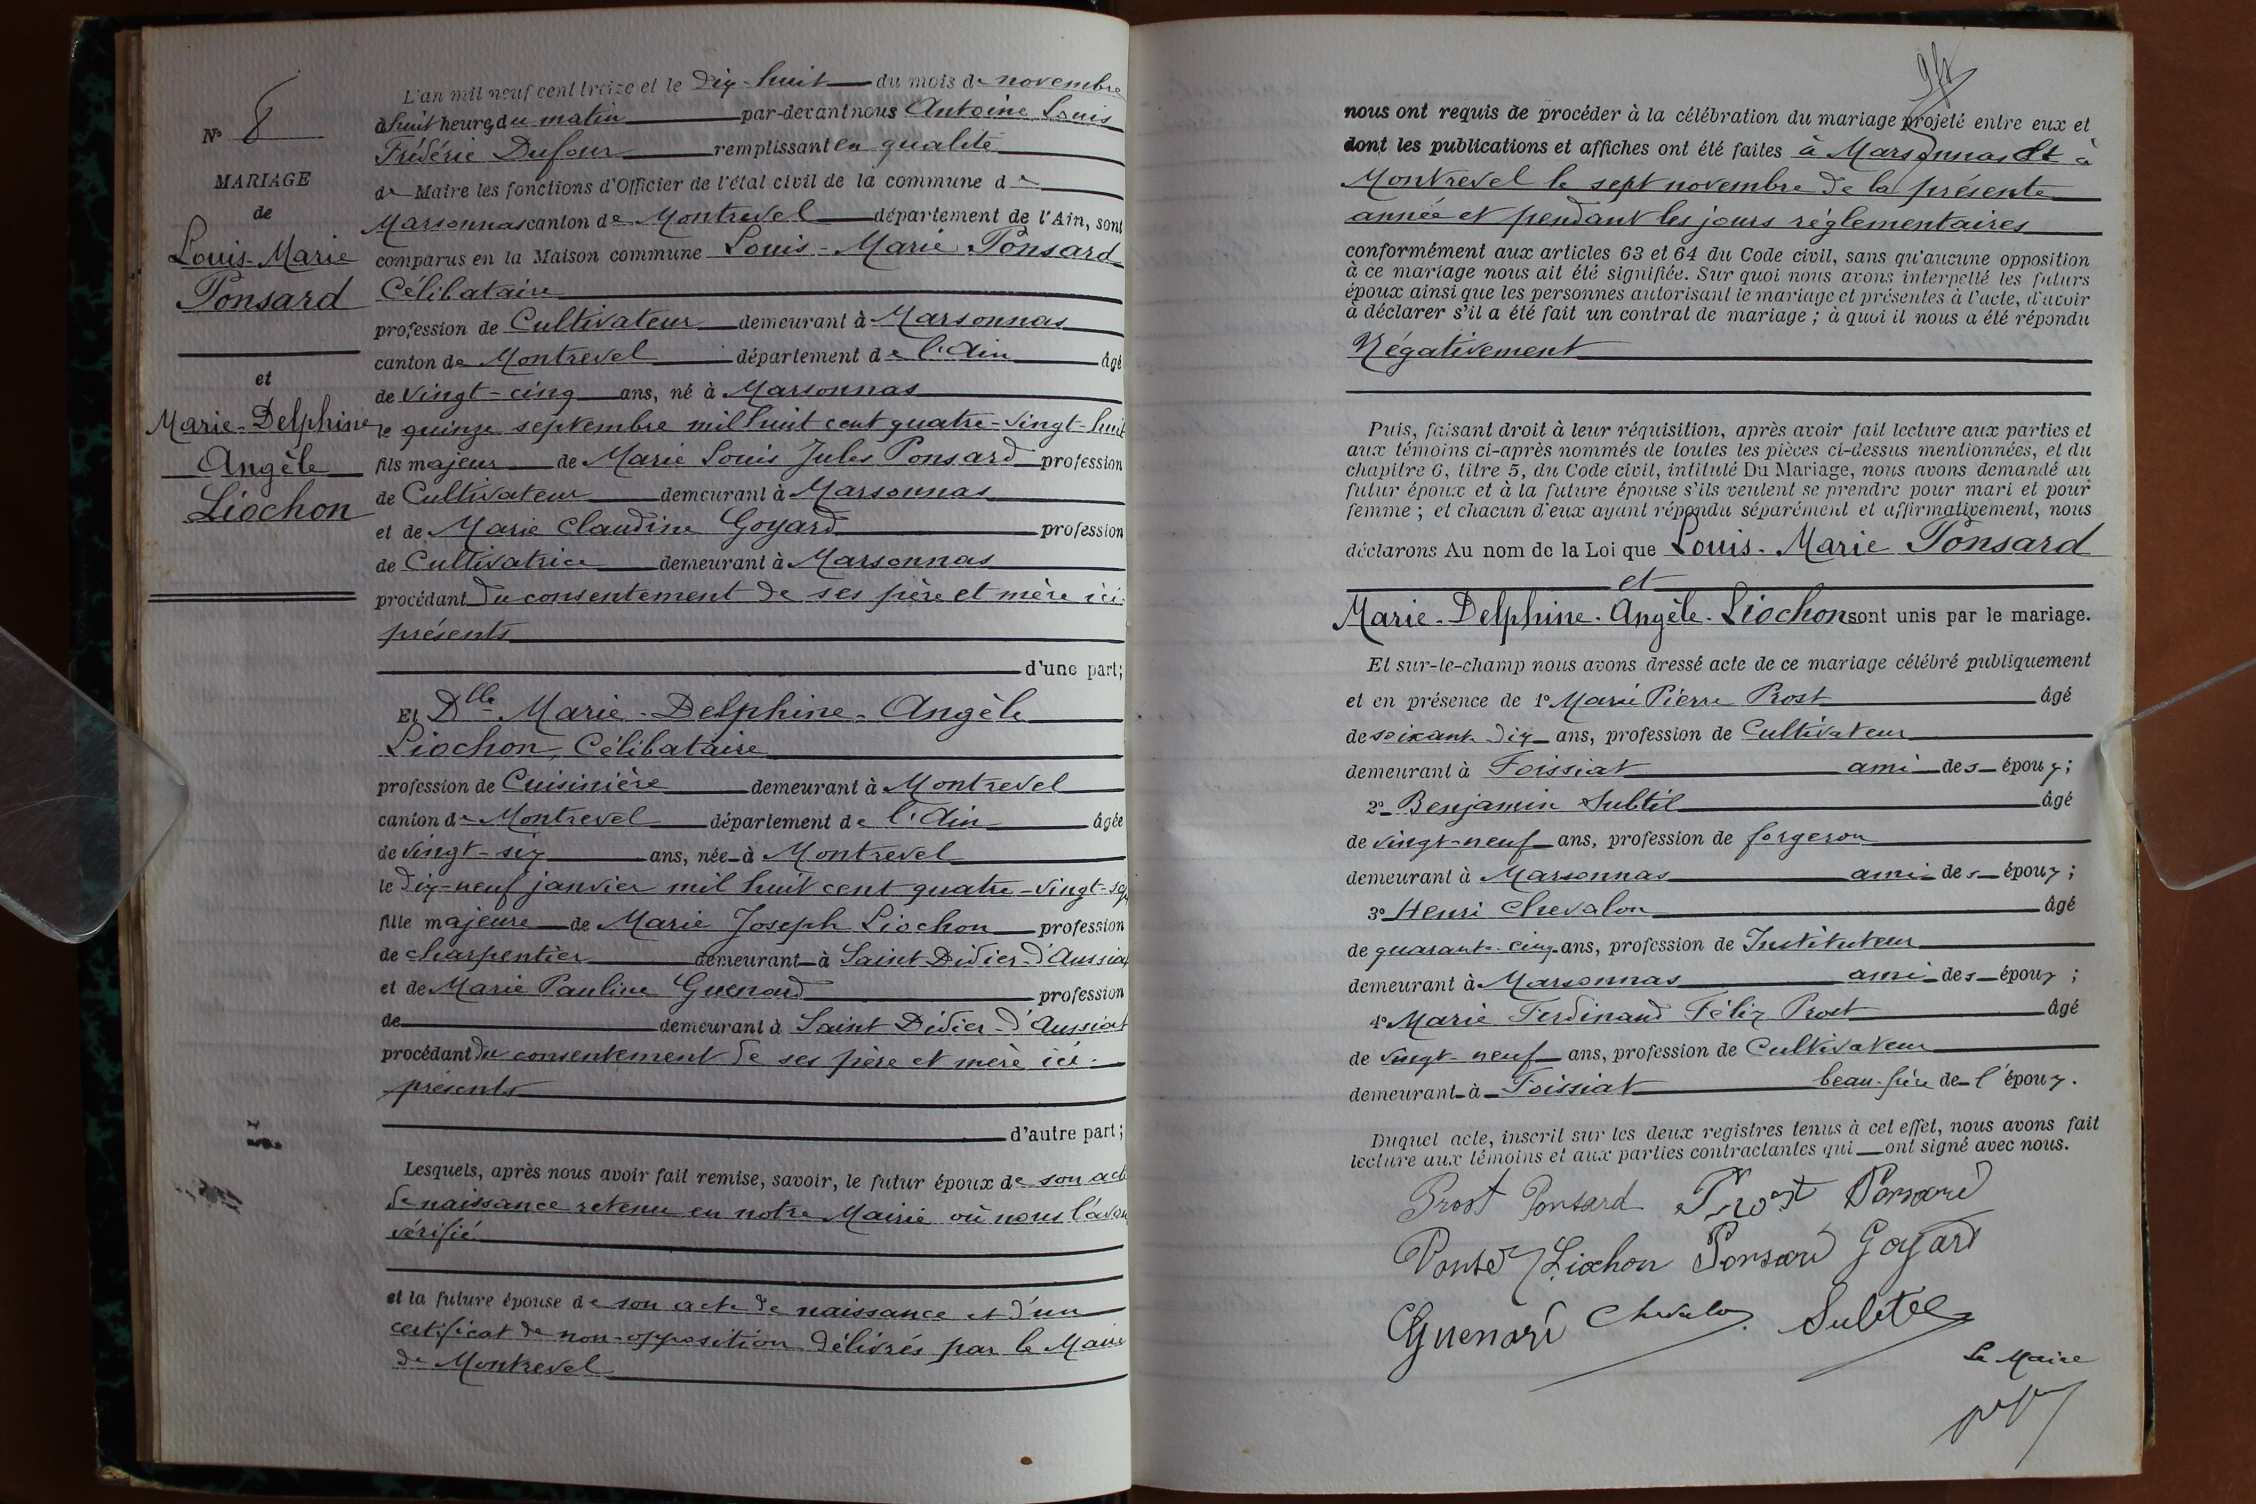 N° 8
MARIAGE
de
Louis-Marie
Ponsard
et
Marie-Delphine
Angèle
Liochon
L'an mil neuf cent treize et le dix-huit du mois de novembre
à huit heures du matin par-devant nous Antoine Louis
Frédéric Dufour remplissant en qualité
de Maire les fonctions d'Officier de l'état civil de la commune de
Marsonnas canton de Montrevel département de l'Ain, sont
comparus en la Maison commune Louis-Marie Ponsard
Célibataire
profession de Cultivateur demeurant à Marsonnas
canton de Montrevel département de l'Ain âgé
de vingt-cinq ans, né à Marsonnas
le quinze septembre mil huit cent quatre-vingt-huit
fils majeur de Marie Louis Jules Ponsard profession
de Cultivateur demeurant à Marsonnas
et de Marie Claudine Goyard profession
de Cultivatrice demeurant à Marsonnas
procédant du consentement de ses père et mère ici
présents
d'une part;
Et Dlle Marie-Delphine-Angèle
Liochon, Célibataire
profession de Cuisinière demeurant à Montrevel
canton de Montrevel département de l'Ain âgée
de vingt-six ans, née à Montrevel
le dix-neuf janvier mil huit cent quatre-vingt-sept
fille majeure de Marie Joseph Liochon profession
de charpentier demeurant à Saint-Didier-d'Aussiat
et de Marie Pauline Guenard profession
de demeurant à Saint Didier-d'Aussiat
procédant du consentement de ses père et mère ici
présents
d'autre part;
Lesquels, après nous avoir fait remise, savoir, le futur époux de son acte
de naissance retenu en notre Mairie où nous l'avons
vérifié
et la future épouse de son acte de naissance et d'un
certificat de non-opposition délivrés par le Maire
de Montrevel
nous ont requis de procéder à la célébration du mariage projeté entre eux et
dont les publications et affiches ont été faites à Marsonnas et à
Montrevel le sept novembre de la présente
année et pendant les jours réglementaires
conformément aux articles 63 et 64 du Code civil, sans qu'aucune opposition
à ce mariage nous ait été signifiée. Sur quoi nous avons interpellé les futurs
époux ainsi que les personnes autorisant le mariage et présentes à l'acte, d'avoir
à déclarer s'il a été fait un contrat de mariage ; à quoi il nous a été répondu
Négativement
Puis, faisant droit à leur réquisition, après avoir fait lecture aux parties et
aux témoins ci-après nommés de toutes les pièces ci-dessus mentionnées, et du
chapitre 6, titre 5, du Code civil, intitulé Du Mariage, nous avons demandé au
futur époux et à la future épouse s'ils veulent se prendre pour mari et pour
femme ; et chacun d'eux ayant répondu séparément et affirmativement, nous
déclarons Au nom de la Loi que Louis-Marie Ponsard
et
Marie-Delphine-Angèle-Liochon sont unis par le mariage.
Et sur-le-champ nous avons dressé acte de ce mariage célébré publiquement
et en présence de 1° Marie Pierre Prost âgé
de soixante dix ans, profession de Cultivateur
demeurant à Foissiat ami des époux;
2° Benjamin Subtil âgé
de vingt-neuf ans, profession de forgeron
demeurant à Marsonnas ami des époux;
3° Henri Chevalon âgé
de quarante-cinq ans, profession de Instituteur
demeurant à Marsonnas ami des époux;
4° Marie Ferdinand Félix Prost âgé
de vingt-neuf ans, profession de Cultivateur
demeurant à Foissiat beau-frère de l'époux.
Duquel acte, inscrit sur les deux registres tenus à cet effet, nous avons fait
lecture aux témoins et aux parties contractantes qui ont signé avec nous.
Prost Ponsard Prost Ponsard
Liochon Ponsard Goyard
Guenard Chevalon Subtil
Le Maire